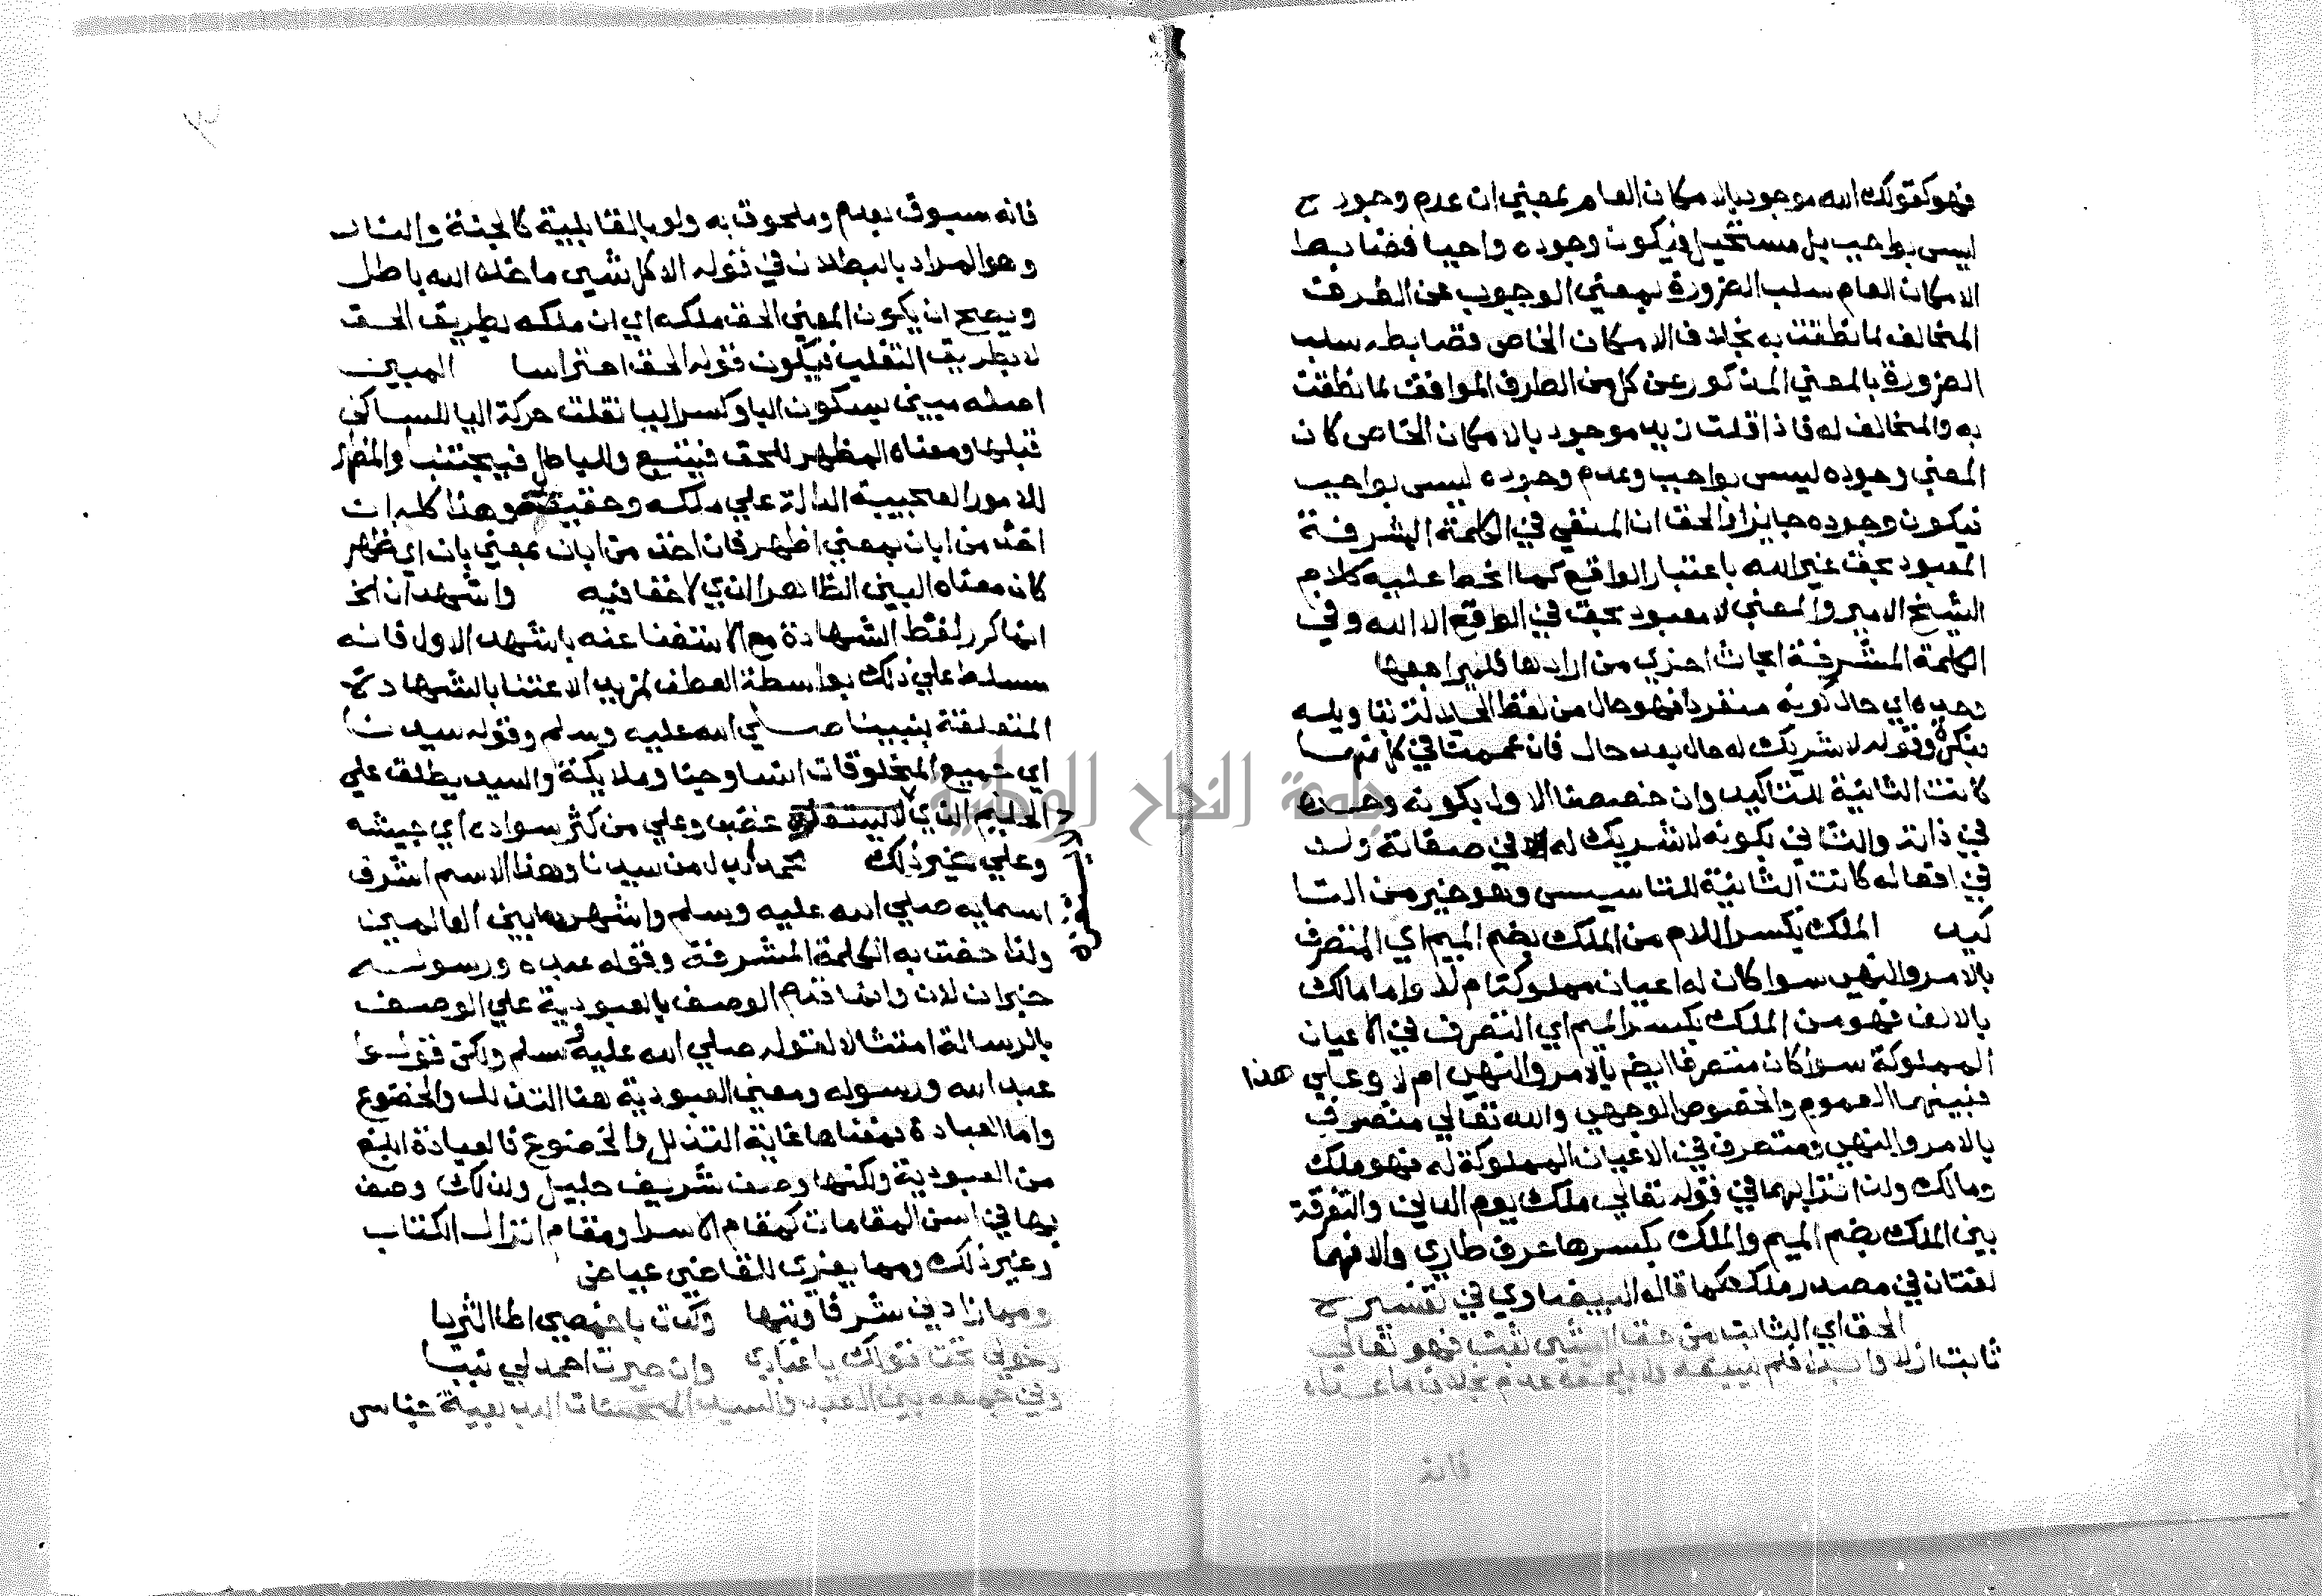 فهو كقولك الله موجود بالامكان العام بمعني ان عدم وجوده
ليس بواجب بل مستحيل فيكون وجوده واجبا فضابط
الامكان العام سلب الضرورة بمعني الوجوب عن الطرف
المخالف لما نطقت به بخلاف الامكان الخاص فضابطه سلب
الضرورة بالمعني المذكور عن كل من الطرف الموافق لما نطقت
به والمخالف له فاذا قلت زيد موجود بالامكان الخاص كان
المعني وجوده ليس بواجب وعدم وجوده ليس بواجب
فيكون وجوده جايزا والحق ان المنفي في الكلمة المشرفة
المعبود بحق غير الله باعتبار الواقع كما انحط عليه كلام
الشيخ الامير والمعني لا معبود بحق في الواقع الا الله وفي
الكلمة المشرفة ابحاث اخري من ارادها فليراجعها
وحده اي حال كونه منفردا فهو حال من لفظ الجلالة بتاويله
بنكرة وقوله لا شريك له حال بعد حال فان عممتا في كل منهما
كانت الثانية للتاكيد وان خصصنا الاول بكونه وحده
في ذاته والثاني بكونه لا شريك له في صفاته ولا
في افعاله كانت الثانية للتاسيس وهو خير من التا
كيد الملك بكسر اللام من الملك بضم الميم اي المتصرف
بالامر والنهي سوا كان له اعيان مملوكة ام لا واما مالك
بالالف فهو من الملك بكسر الميم اي التصرف في الاعيان
المملوكة سوا كان متصرفا ايضم بالامر والنهي ام لا وعلي هذا
فبينهما العموم والخصوص الوجهي والله تعالي متصرف
بالامر والنهي ومتصرف في الاعيان المملوكة له فهو ملك
ومالك ولذا قرا بهما في قوله تعالي ملك يوم الدين والتفرقة
بين الملك بضم الميم والملك بكسرها عرف طاري والا فهما
لغتان في مصدر ملك كما قاله البيضاوي في تفسيره
الحق اي الثابت من حق الشي ثبت فهو تعالي
ثابت ازلا وابدا فلم يسبقه
فانه
فانه مسبوق بعدم وملحوق به ولو بالقابلية كالجنة والنار
وهو المراد بالبطلان في قوله الا كل شي ما خلا الله باطل
ويصح ان يكون المعني الحق ملكه اي ان ملكه بطريق الحق
لا بطريق التغلب فيكون قوله الحق احتراسا المبين
اصله مبين بسكون البا وكسر اليا نقلت حركة اليا للساكن
قبلها ومعناه المظهر للحق فيتبع وللباطل فيجتنب والمظهر
للامور العجيبة الدالة علي ملكه وحقيته وهذا كله ان
اخذ من ابان بمعني اظهر فان اخذ من ابان بمعني بان اي ظهر
كان معناه البين الظاهر الذي لا خفا فيه واشهد ان الخ
انما كرر لفظ الشهادة مع الاستغنا عنه باشهد الاول فانه
مسلط علي ذلك بواسطة العطف لمزيد الاعتنا بالشهادة
المتعلقة بنبينا صلي الله عليه وسلم وقوله سيدنا
اي جميع المخلوقات انسا وجنا وملايكة والسيد يطلق علي
الحليم الذي لا يستفزه غضب وعلي من كثر سواده اي جيشه
وعلي غير ذلك محمد بدل من سيدنا وهذا الاسم اشرف
اسمايه صلي الله عليه وسلم واشهرها بين العالمين
ولذا خصت به الكلمة المشرفة وقوله عبده ورسوله
خبران لان وانما قدم الوصف بالعبودية علي الوصف
بالرسالة امتثالا لقوله صلي الله عليه وسلم ولكن قولوا
عبد الله ورسوله ومعني العبودية هنا التذلل والخضوع
واما العبادة فمعناها غاية التذلل والخضوع فالعبادة ابلغ
من العبودية ولكنها وصف شريف جليل ولذلك وصف
بها في اسن المقامات كمقام الاسرا ومقام انزال الكتاب
وغير ذلك ومما يعزي للقاضي عياض
ومما زادني شرفا وتيها وكدت باخمصي اطا الثريا
دخولي تحت قولك يا عبادي وان صيرت احمد لي نبيا
جامعة النجاح الوطنية